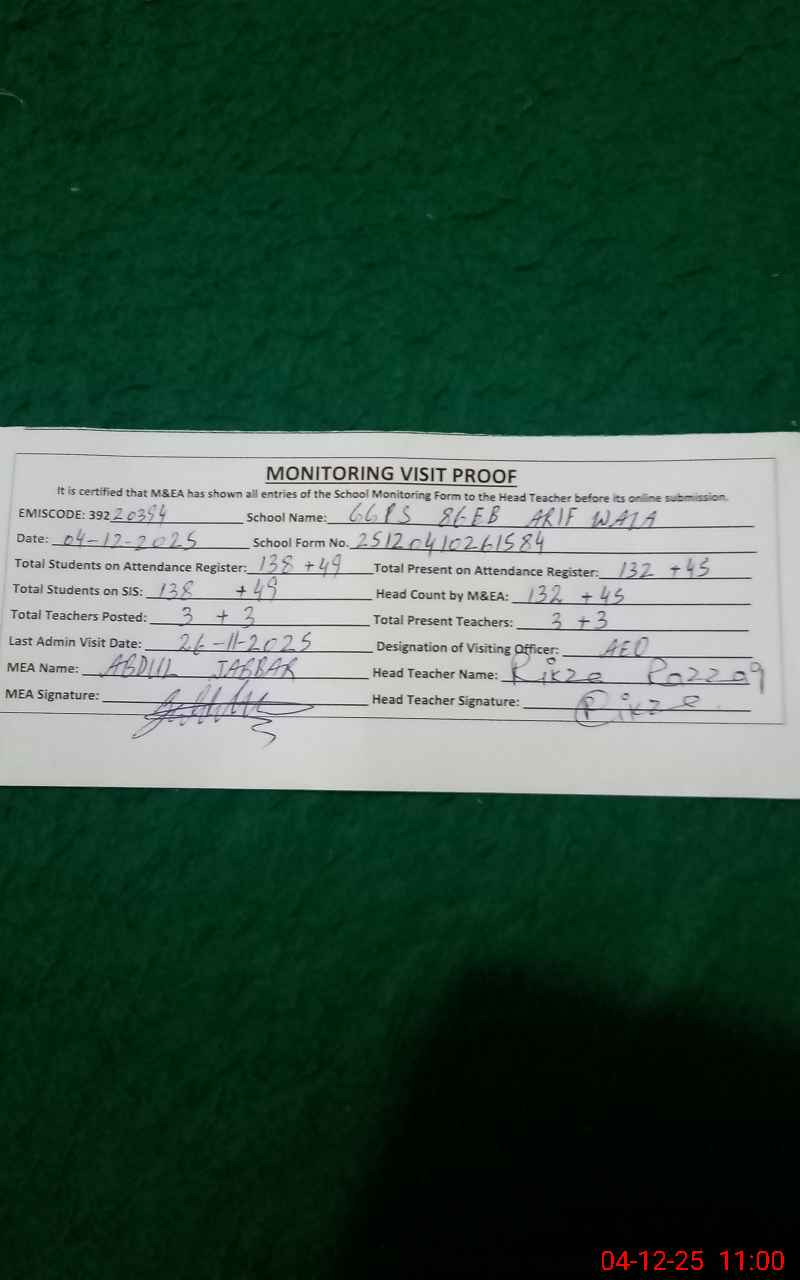 MONITORING VISIT PROOF
It is certified that M&EA has shown all entries of the School Monitoring Form to the Head Teacher before its online submission.
EMISCODE: 39220394 School Name: GGPS 86EB ARIF WALA
Date: 04-12-2025 School Form No. 25120410261584
Total Students on Attendance Register: 138 +49 Total Present on Attendance Register: 132 +45
Total Students on SIS: 138 +49 Head Count by M&EA: 132 +45
Total Teachers Posted: 3 + 3 Total Present Teachers: 3 +3
Last Admin Visit Date: 26-11-2025 Designation of Visiting Officer: AEO
MEA Name: ABDUL JABBAR Head Teacher Name: Rikza Razzaq
MEA Signature: Head Teacher Signature: Rikza
04-12-25 11:00